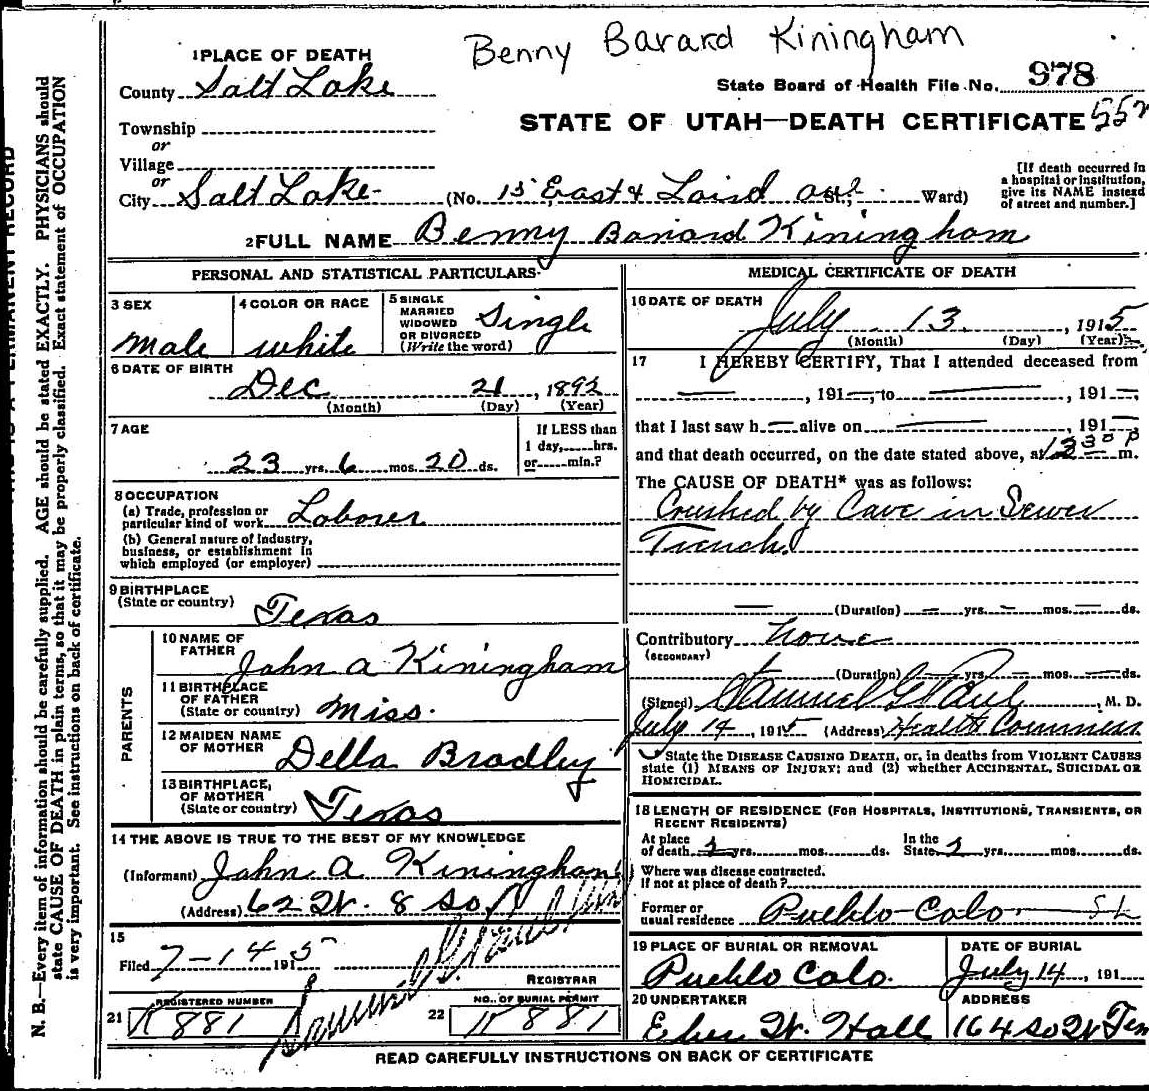 Benny Barard Kiningham
1 PLACE OF DEATH
County Salt Lake
State Board of Health File No. 978
Township
or
Village
or
City Salt Lake
STATE OF UTAH—DEATH CERTIFICATE
(No. 15 East & Laird St.; Ward)
[If death occurred in
a hospital or institution,
give its NAME instead
of street and number.]
2 FULL NAME Benny Barard Kiningham
PERSONAL AND STATISTICAL PARTICULARS
3 SEX
male
4 COLOR OR RACE
white
5 SINGLE
MARRIED
WIDOWED
OR DIVORCED
(Write the word)
Single
6 DATE OF BIRTH
Dec 21, 1892
(Month) (Day) (Year)
7 AGE
23 yrs. 6 mos. 20 ds.
If LESS than
1 day, hrs.
or min.?
8 OCCUPATION
(a) Trade, profession or
particular kind of work Laborer
(b) General nature of industry,
business, or establishment in
which employed (or employer)
9 BIRTHPLACE
(State or country)
Texas
PARENTS
10 NAME OF
FATHER
John A Kiningham
11 BIRTHPLACE
OF FATHER
(State or country) Miss.
12 MAIDEN NAME
OF MOTHER
Della Bradley
13 BIRTHPLACE,
OF MOTHER
(State or country) Texas
14 THE ABOVE IS TRUE TO THE BEST OF MY KNOWLEDGE
(Informant) John A Kiningham
(Address) 62 W. 8 So
15
Filed 7-14 1915
REGISTRAR
REGISTERED NUMBER
21 K 881
NO. OF BURIAL PERMIT
22 K 881
MEDICAL CERTIFICATE OF DEATH
16 DATE OF DEATH
July 13, 1915
(Month) (Day) (Year)
17 I HEREBY CERTIFY, That I attended deceased from
—, 191—, to —, 191—,
that I last saw h— alive on —, 191—,
and that death occurred, on the date stated above, at 1230 P m.
The CAUSE OF DEATH* was as follows:
Crushed by Cave in Sewer
Trench
— (Duration) — yrs. — mos. — ds.
Contributory None
(SECONDARY)
(Duration) — yrs. — mos. — ds.
(Signed) Samuel G Paul, M. D.
July 14, 1915 (Address) Health Commiss
State the DISEASE CAUSING DEATH, or, in deaths from VIOLENT CAUSES
state (1) MEANS OF INJURY; and (2) whether ACCIDENTAL, SUICIDAL OR
HOMICIDAL.
18 LENGTH OF RESIDENCE (FOR HOSPITALS, INSTITUTIONS, TRANSIENTS, OR
RECENT RESIDENTS)
At place
of death yrs. mos. ds.
In the
State yrs. mos. ds.
Where was disease contracted.
If not at place of death?
Former or
usual residence Pueblo Colo
19 PLACE OF BURIAL OR REMOVAL
Pueblo Colo.
DATE OF BURIAL
July 14, 191
20 UNDERTAKER
Eber W. Hall
ADDRESS
164 So W Tem
READ CAREFULLY INSTRUCTIONS ON BACK OF CERTIFICATE
N. B.—Every item of information should be carefully supplied. AGE should be stated EXACTLY. PHYSICIANS should
state CAUSE OF DEATH in plain terms, so that it may be properly classified. Exact statement of OCCUPATION
is very important. See instructions on back of certificate.